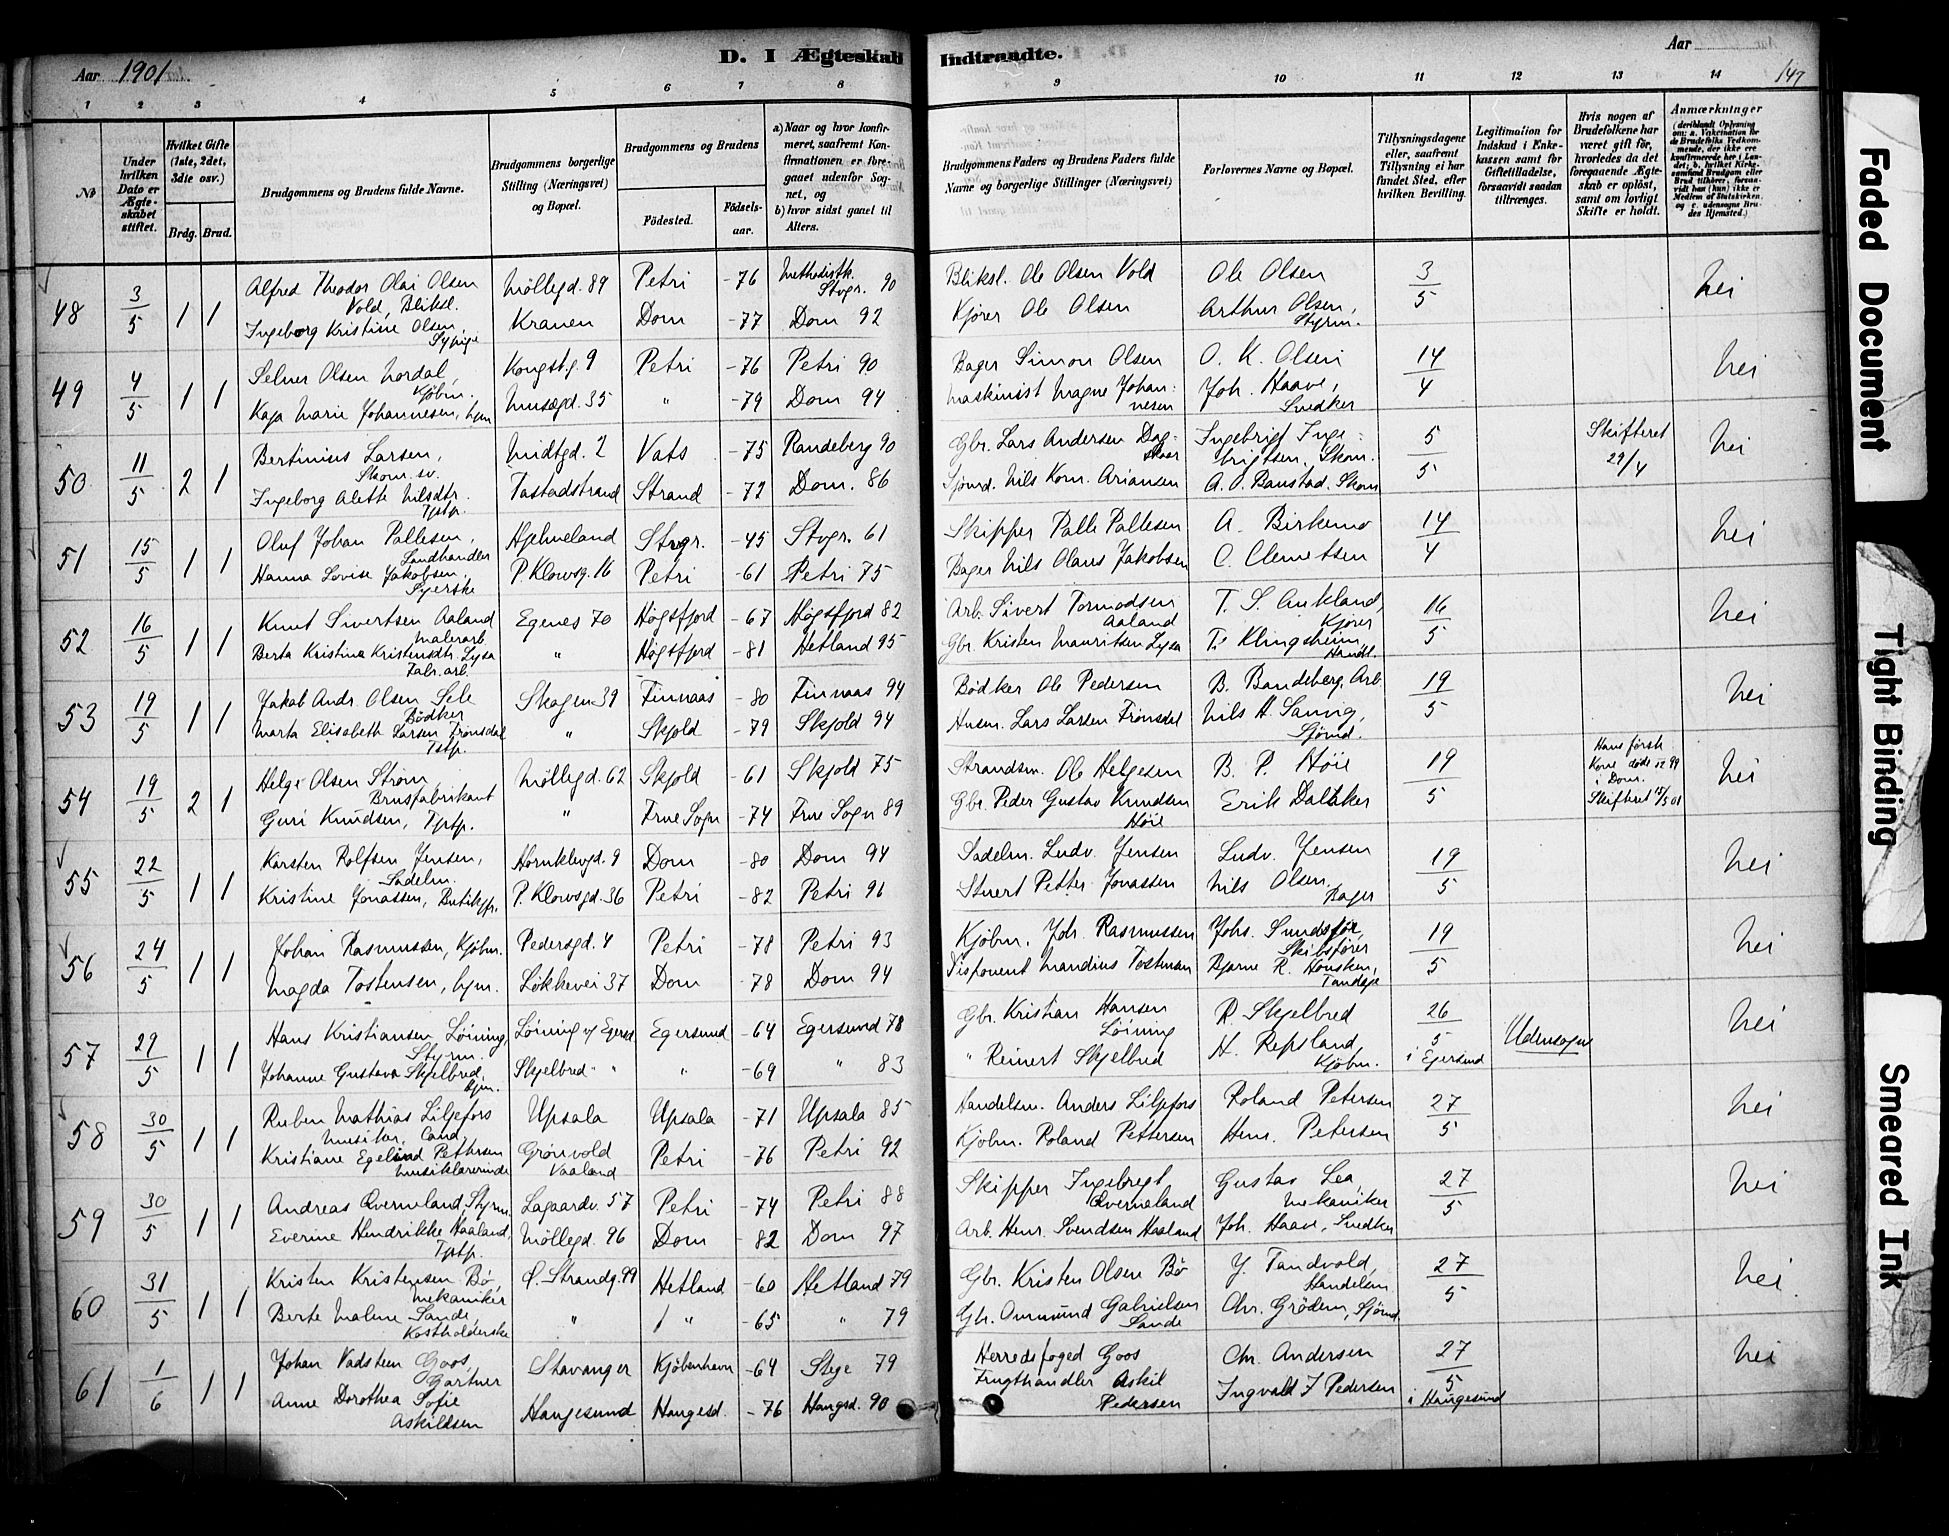 Aar 1901
D. I Ægteskab Indtraadte.
Aar
147
1 2 3 4 5 6 7 8 9 10 11 12 13 14
No
Under hvilken Dato er Ægteskabet stiftet.
Hvilket Gifte (1ste, 2det, 3die osv.)
Brdg. Brud.
Brudgommens og Brudens fulde Navne.
Brudgommens borgerlige Stilling (Næringsvei) og Bopæl.
Brudgommens og Brudens
Födested. Födsels-aar.
a) Naar og hvor konfirmeret, saafremt Konfirmationen er foregaaet udenfor Sognet, og b) hvor sidst gaaet til Alters.
Brudgommens Faders og Brudens Faders fulde Navne og borgerlige Stillinger (Næringsvei)
Forlovernes Navne og Bopæl.
Tillysningsdagene eller, saafremt Tillysning ei har fundet Sted, efter hvilken Bevilling.
Legitimation for Indskud i Enkekassen samt for Giftetilladelse, forsaavidt saadan tiltrænges.
Hvis nogen af Brudefolkene har været gift før, hvorledes da det foregaaende Ægteskab er opløst, samt om lovligt Skifte er holdt.
Anmærkninger
48 3/5 1 1 Alfred Theodor Olai Olsen Vold, Bliksl. Möllegd. 89 Petri -76 Methodistk. Stvgr. 90 Bliksl. Ole Olsen Vold Ole Olsen 3/5 Nei
Ingeborg Kristine Olsen, Sypige Kranen Dom -77 Dom 92 Kjører Ole Olsen Arthur Olsen, Styrm.
49 4/5 1 1 Selmer Olsen Nordal, Kjøbm. Kongstg. 9 Petri -76 Petri 90 Bager Simon Olsen O. K. Olsen 14/4 Nei
Kaja Marie Johannesen, hjm Musægd. 35 " -79 Dom 94 Maskinist Magne Johannesen Joh. Haave, Snedker
50 11/5 2 1 Bertinius Larsen, Skom.sv. Midtgd. 2 Vats -75 Randeberg 90 Gbr. Lars Andersen Ingebrigt Ingebrigtsen, Skom. 5/5 Skifteret 29/4 Nei
Ingeborg Alette Nilsdtr. Tjstp. Tastadstrand Strand -72 Dom. 86 Sjömd. Nils Korn. Ariansen A. O. Skom
51 15/5 1 1 Oluf Johan Pallesen, Landhandler Hjelmeland Stvgr. -45 Stvgr. 61 Skipper Palle Pallesen A. Birkemo 14/4 Nei
Hanna Lovise Jakobsen. Syerske P. Klowsg. 16 Petri -61 Petri 75 Bager Nils Olaus Jakobsen C. Clemetsen
52 16/5 1 1 Knut Sivertsen Aaland Malerarb. Egenes 70 Högsfjord -67 Högsfjord 82 Arb. Sivert Tormodsen Aaland T. S. Aukland, Kjører 16/5 Nei
Berta Kristine Kristensdtr. Lysa Fabr.arb. " Högsfjord -81 Hetland 95 Gbr. Kristen Mauritsen Lysa T. Klingsheim Handl.
53 19/5 1 1 Jakob Andr. Olsen Sele Bödker Skagen 39 Finnaas -80 Finnaas 94 Bödker Ole Pedersen B. Bandeberg, Arb. 19/5 Nei
Marta Elisabeth Larsen Frönsdal Tjstp. " Skjold -79 Skjold 94 Husm. Lars Larsen Frönsdal Nils H. Sannig, Sjömd.
54 19/5 2 1 Helge Olsen Ström, Brusfabrikant Möllegd. 62 Skjold -61 Skjold 75 Strandsm. Ole Helgesen B. P. Höie 19/5 Hans første Kone döde 99 i Dom. Skifteret 15/5 01 Nei
Guri Knudsen, Tjstp. " Frue Sogn -74 Frue Sogn 89 Gbr. Peder Gustav Knudsen Höie Erik Dalaker
55 22/5 1 1 Karsten Rolfsen Jensen, Sadelm. Hornklevgd. 9 Dom -80 Dom 94 Sadelm. Ludv. Jensen Ludv. Jensen 19/5 Nei
Kristine Jonassen, Butikjfr. P. Klowsgd. 36 Petri -82 Petri 96 Stuert Petter Jonassen Nils Olsen, Bager
56 24/5 1 1 Johan Rasmussen, Kjøbm. Pedersgd. 4 Petri -78 Petri 93 Kjøbm. Joh. Rasmussen Johs. Sundsför, Skibsfører 19/5 Nei
Magda Tostensen, hjm. Lökkevei 37 Dom -78 Dom 94 Disponent Mandius Tostensen Bjarne R. Housken, Tandlæge
57 29/5 1 1 Hans Kristiansen Löining, Styrm. Löining v/ Egers Egersund -64 Egersund 78 Gbr. Kristian Hansen Löining R. Skjelbred 26/5 i Egersund Udensogns Nei
Johanne Gustava Skjelbred hjm. Skjelbred " " -69 " 83 " Reinert Skjelbred H. Repsland, Kjøbm.
58 30/5 1 1 Ruben Mathias Liljefors Musiker, Cand. Upsala Upsala -71 Upsala 85 Handelsm. Anders Liljefors Roland Petersen 27/5 Nei
Kristiane Egeland Pettersen Musiklærerinde Grönvold Vaaland Petri -76 Petri 92 Kjøbm. Roland Pettersen Henr. Petersen
59 30/5 1 1 Andreas Qverneland, Styrm. Lagaardv. 57 Petri -74 Petri 88 Skipper Ingebregt Qverneland Gustav Lea Mekaniker 27/5 Nei
Everine Hendrikke Haaland, Tjstp. Möllegd. 96 Dom -82 Dom 97 Arb. Henr. Svendsen Haaland Joh. Haave, Snedker
60 31/5 1 1 Kristen Kristensen Bö, Mekaniker Ø. Strandg. 99 Hetland -60 Hetland 79 Gbr. Kristen Olsen Bö Y. Tandvold, Handelsm 27/5 Nei
Berte Malene Sande, Kostholderske " " -65 " 79 Gbr. Ommund Gabrielsen Sande Chr. Grödem, Sjömd.
61 1/6 1 1 Johan Vadsteen Goos, Gartner Stavanger Kjöbenhavn -64 Stege 79 Herredsfoged Goos Chr. Andersen 27/5 i Haugesund Nei
Anne Dorothea Sofie Askildsen Haugesund Haugesd. -76 Haugsd. 90 Frugthandler Askil Pedersen Ingvald J Pedersen
Faded Document
Tight Binding
Smeared Ink